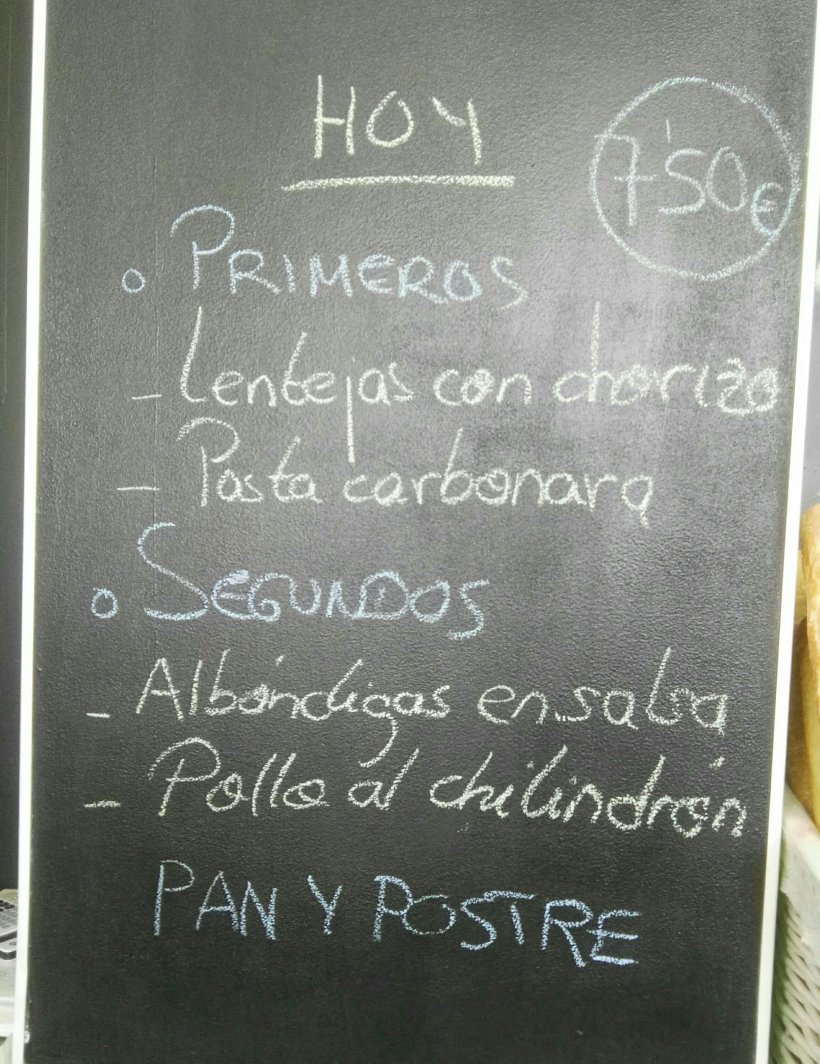 HOY
7'50€
o PRIMEROS
- Lentejas con chorizo
- Pasta carbonara
o SEGUNDOS
- Albóndigas en salsa
- Pollo al chilindrón
PAN Y POSTRE